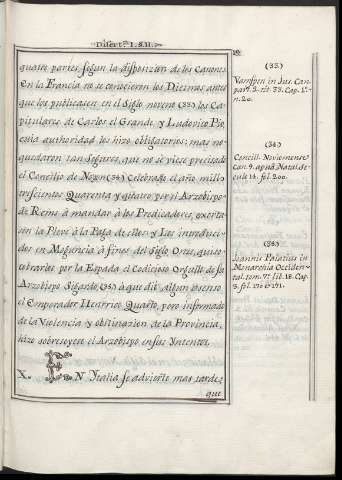 Disert.ⁿ I. S. II.
quatro partes, segun la disposizion de los Canones
en la Francia no se conocieron los Diezmos antes
que los publicasen en el Siglo noveno (33) los Ca-
pitulares de Carlos el Grande, y Ludovico Pio,
cuia authoridad los hizo obligatorios; mas no
quedaron tan Seguros, que no se viese precisado
el Concilio de Noyon (34) Celebrado el año mil
trescientos Quarenta y quatro por el Arzobispo
de Reims à mandar à los Predicadores, exorta-
sen la Pleve à la Paga de ellos; y Los introduci-
dos en Maguncia à fines del Siglo Once, quiso
cobrarlos por la Espada el Codicioso Orgullo de su
Arzobispo Sigardo (35) à que diò algun asenso
el Emperador Henrrico Quarto, pero informado
de la Violencia y obstinazion de la Provincia,
hizo sobreseyese el Arzobispo en sus Yntentos.
X. EN Ytalia se advierte mas tarde,
que
(33)
Vanespen in Jus. Can.
part. 2. tit. 33. Cap. 1.
n. 20.
(34)
Concil. Noviomense
Can. 9. apud Natal. Se-
culo 14. fol. 200.
(35)
Joannis Palatius in
Monarchia Occiden-
tal. tom. 7.